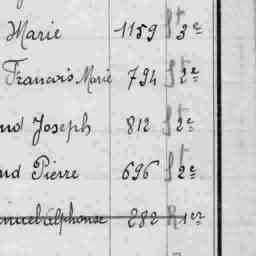 Marie 1159 St 3e
Francois Marie 794 St 2e
nd Joseph 812 St 2e
nd Pierre 696 St 2e
nuel Alphonse 282 R 1er